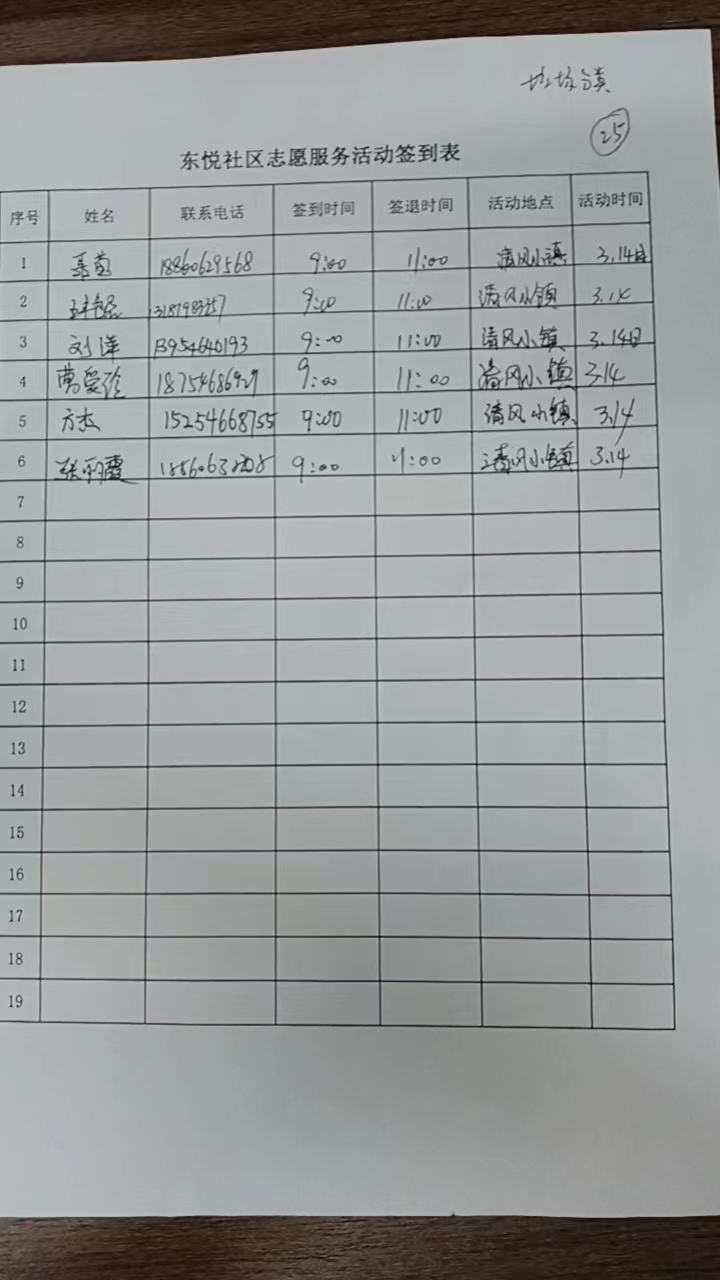 25
东悦社区志愿服务活动签到表
序号 姓名 联系电话 签到时间 签退时间 活动地点 活动时间
1 18860629568 9:00 11:00 清风小镇 3.14日
2 13187983257 9:00 11:00 清风小镇 3.14
3 刘洋 13954640193 9:00 11:00 清风小镇 3.14日
4 18754686927 9:00 11:00 清风小镇 3.14
5 方杰 15254668755 9:00 11:00 清风小镇 3.14
6 张丽霞 9:00 11:00 清风小镇 3.14
7
8
9
10
11
12
13
14
15
16
17
18
19